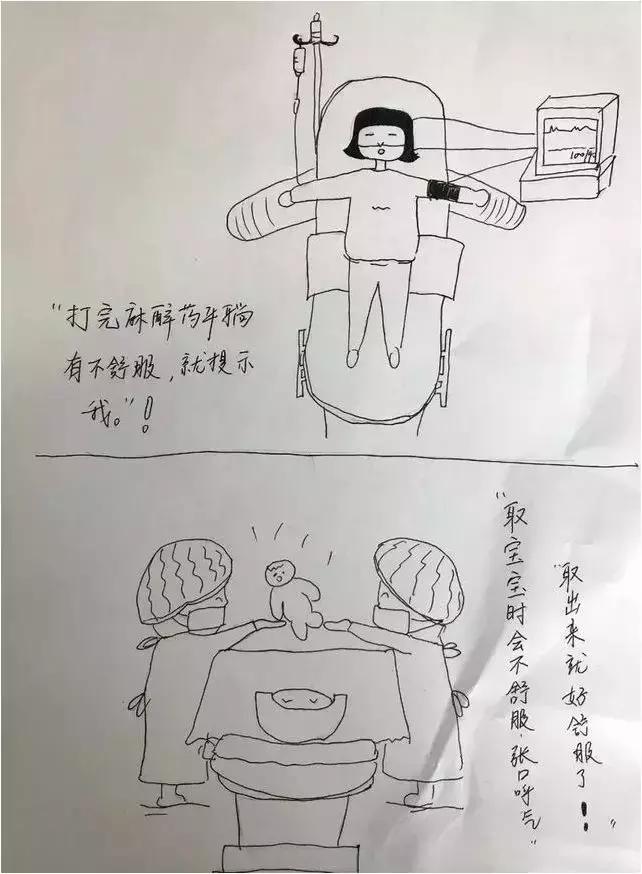 "打完麻醉药平躺
有不舒服，就提示
我。"！
"取宝宝时会不舒服，张口呼气"
"取出来就好舒服了！"